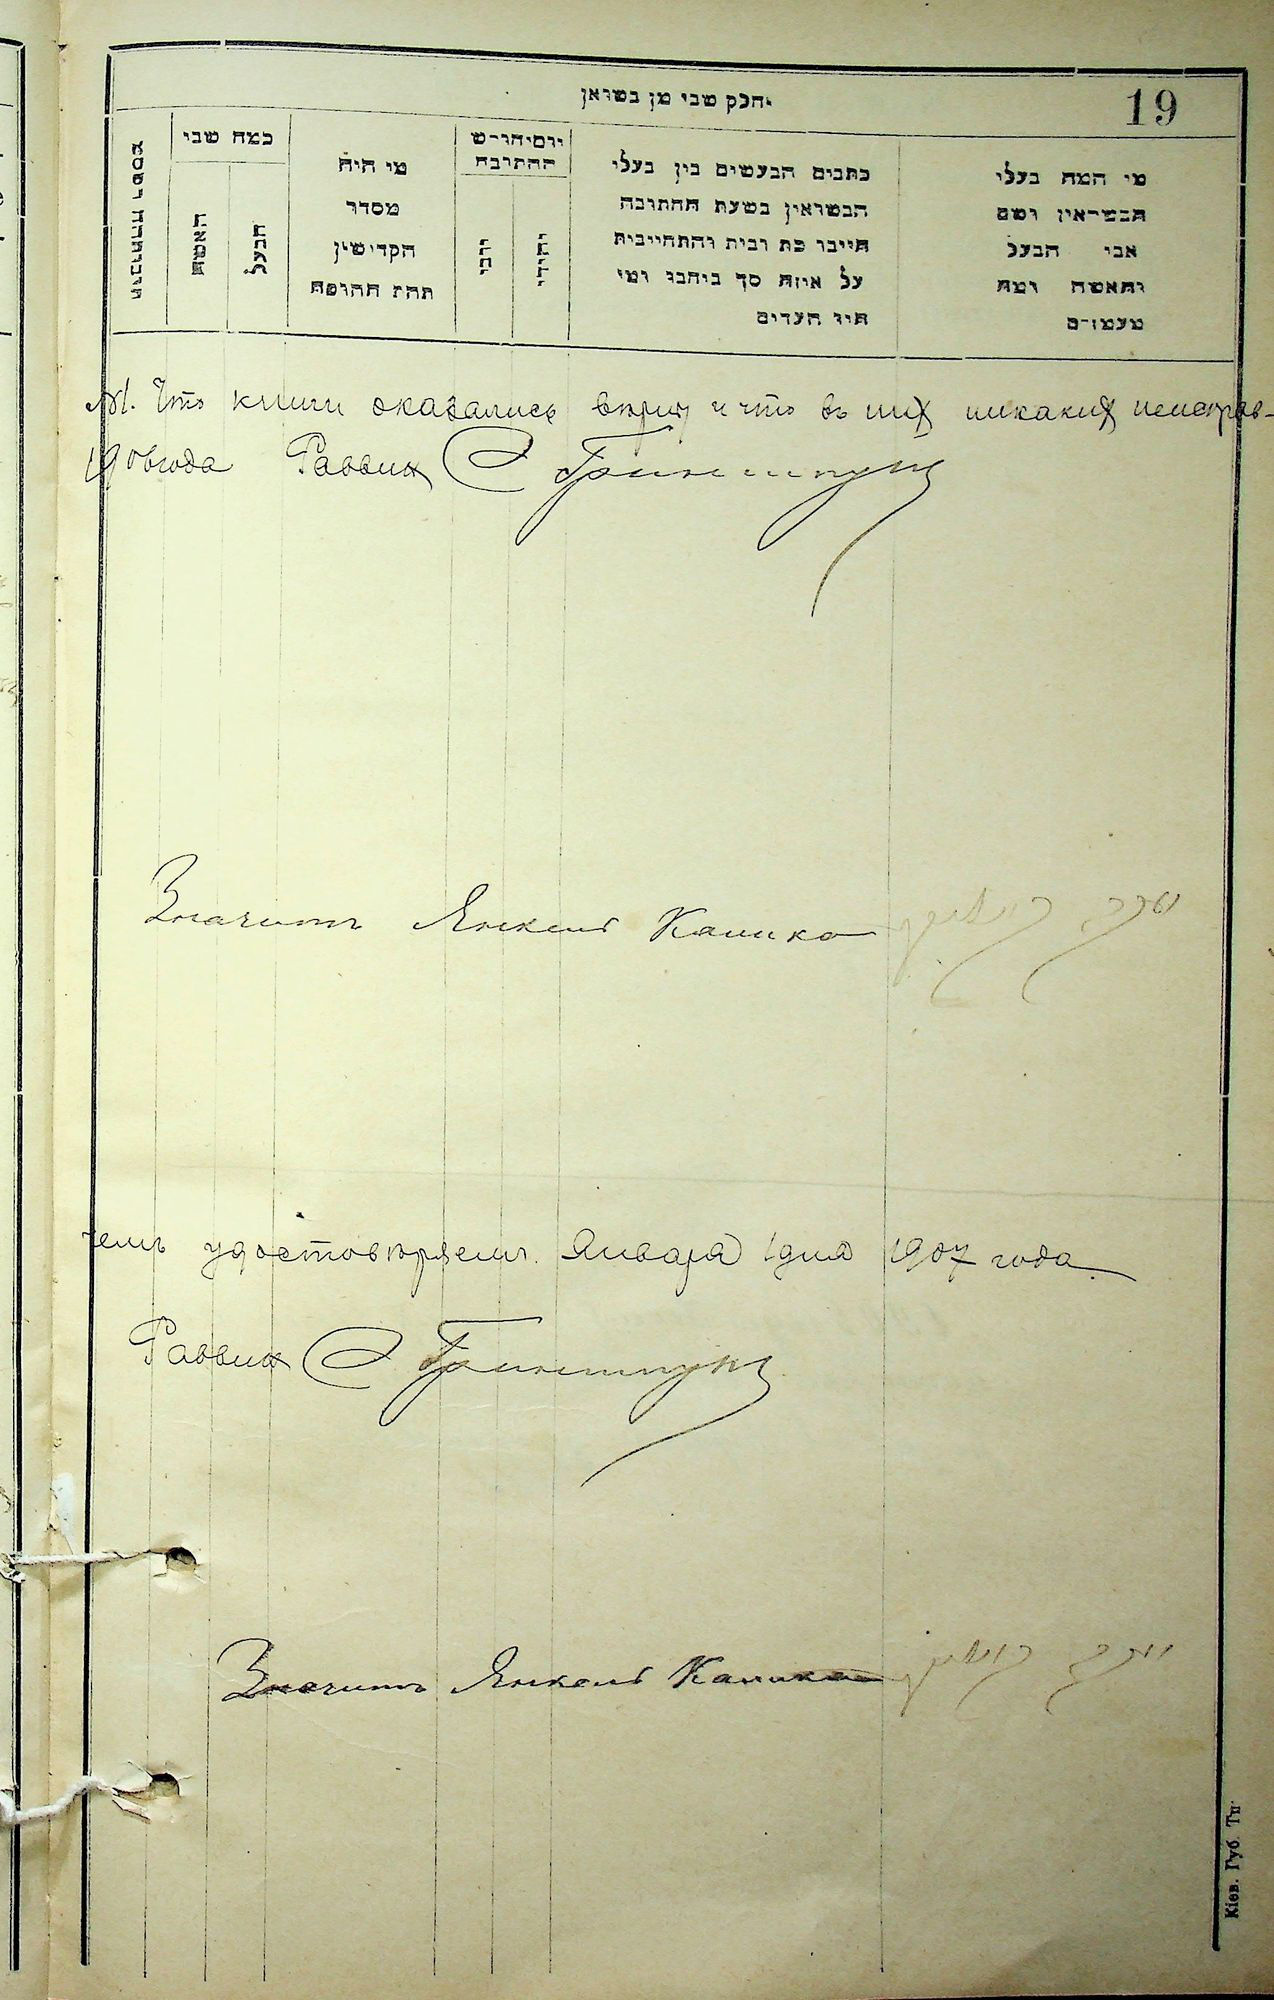 19
חלק שני מן נשואין
מי המה בעלי
הנשואין ושם
אבי הבעל
והאשה ומה
מעמדם
כתבים הנעשים בין בעלי
הנשואין בשעת החתונה
חייבו כת ובית והתחייבית
על איזה סך ביחבו ומי
היו העדים
יום וחודש
החתונה
יהודי
נוצרי
מי היה
מסדר
הקדישין
תחת החופה
כמה שני
הבעל
האשה
Что книги оказались вѣрны и что въ нихъ никакихъ неисправ-
1906 года Раввин С Гриншпунъ
Значитъ Янкель Камика
чемъ удостовѣряемъ. Января 1 дня 1907 года.
Раввин С Гриншпунъ
Значитъ Янкель Камика
Кіев. Губ. Тип.